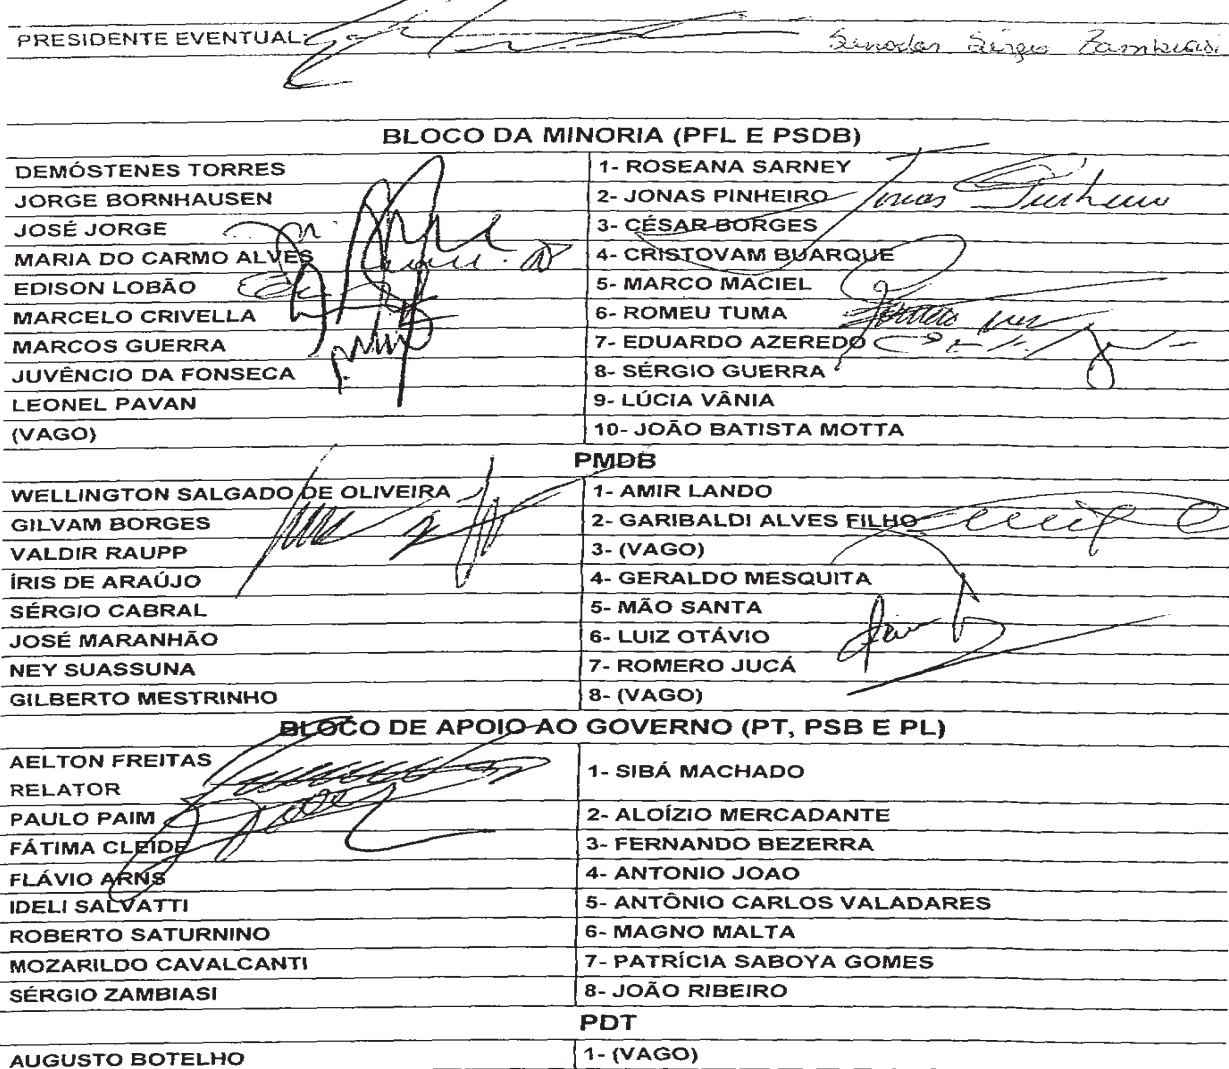 PRESIDENTE EVENTUAL: Senador Sérgio Zambiasi
BLOCO DA MINORIA (PFL E PSDB)
DEMÓSTENES TORRES 1- ROSEANA SARNEY
JORGE BORNHAUSEN 2- JONAS PINHEIRO Jonas Pinheiro
JOSÉ JORGE 3- CÉSAR BORGES
MARIA DO CARMO ALVES 4- CRISTOVAM BUARQUE
EDISON LOBÃO 5- MARCO MACIEL
MARCELO CRIVELLA 6- ROMEU TUMA
MARCOS GUERRA 7- EDUARDO AZEREDO
JUVÊNCIO DA FONSECA 8- SÉRGIO GUERRA
LEONEL PAVAN 9- LÚCIA VÂNIA
(VAGO) 10- JOÃO BATISTA MOTTA
PMDB
WELLINGTON SALGADO DE OLIVEIRA 1- AMIR LANDO
GILVAM BORGES 2- GARIBALDI ALVES FILHO
VALDIR RAUPP 3- (VAGO)
ÍRIS DE ARAÚJO 4- GERALDO MESQUITA
SÉRGIO CABRAL 5- MÃO SANTA
JOSÉ MARANHÃO 6- LUIZ OTÁVIO
NEY SUASSUNA 7- ROMERO JUCÁ
GILBERTO MESTRINHO 8- (VAGO)
BLOCO DE APOIO AO GOVERNO (PT, PSB E PL)
AELTON FREITAS
RELATOR 1- SIBÁ MACHADO
PAULO PAIM 2- ALOÍZIO MERCADANTE
FÁTIMA CLEIDE 3- FERNANDO BEZERRA
FLÁVIO ARNS 4- ANTONIO JOAO
IDELI SALVATTI 5- ANTÔNIO CARLOS VALADARES
ROBERTO SATURNINO 6- MAGNO MALTA
MOZARILDO CAVALCANTI 7- PATRÍCIA SABOYA GOMES
SÉRGIO ZAMBIASI 8- JOÃO RIBEIRO
PDT
AUGUSTO BOTELHO 1- (VAGO)